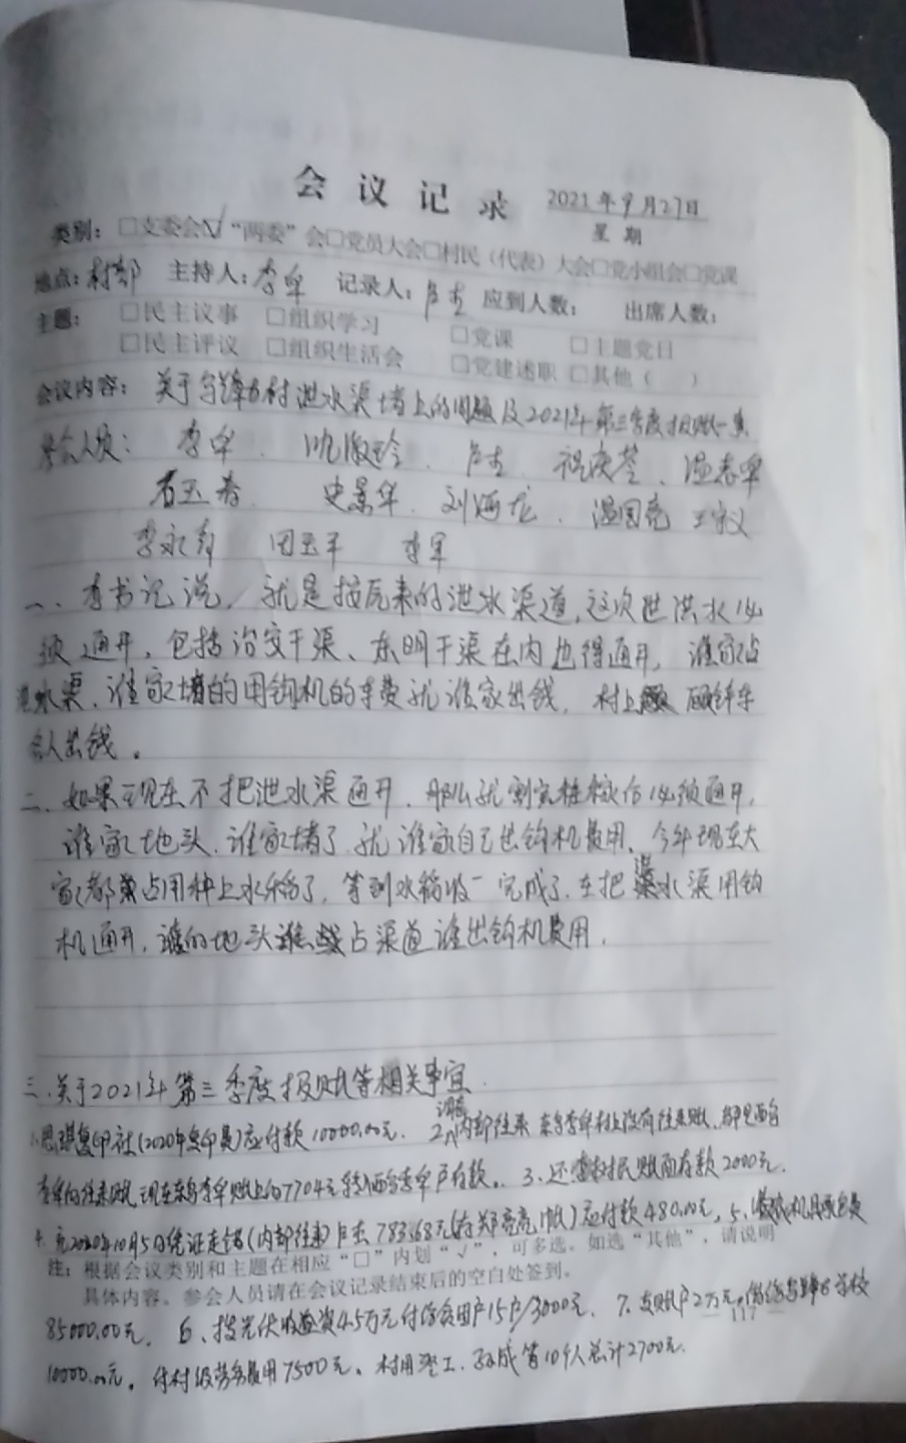 会议记录 2021年9月27日
星期
类别：□支委会☑“两委”会□党员大会□村民（代表）大会□党小组会□党课
地点：村部 主持人：李军 记录人：卢杰 应到人数： 出席人数：
主题： □民主议事 □组织学习 □党课 □主题党日
□民主评议 □组织生活会 □党建述职 □其他（ ）
会议内容：关于 村泄水渠堵上的问题及2021年第三季度报账一事
参会人员：李军、 卢杰 温志军
史景华、刘海龙、温国亮 王
李永 田玉平 李军
一、李书记说，就是按原来的泄水渠道，这次泄洪水必
须通开，包括治安干渠、东明干渠在内也得通开，谁家占
泄水渠，谁家堵的用钩机的车费就谁家出钱，村上
出钱。
二、如果现在不把泄水渠通开，那么就割完 必须通开，
谁家地头，谁家堵了就谁家自己出钩机费用，今年现在大
家都 占用种上水稻了，等到水稻收 完成了，在把泄水渠用钩
机通开，谁的地头谁 占渠道谁出钩机费用。
三、关于2021年第三季度报账等相关事宜
1、思琪复印社（2020年复印费）应付款10000.00元、2、内部往来 李军村上没有往来账、
李军 往来账，现在 李军账上的7704元转 李军户存款。3、还 村民账面存款2000元、
4、 2020年10月5日凭证走错（内部往来）卢杰783.68元（存郑亮亮 帐）应付款480.00元，5、 机具承包费
注：根据会议类别和主题在相应“□”内划“√”，可多选。如选“其他”，请说明
具体内容。参会人员请在会议记录结束后的空白处签到。
85000.00元， 6、按光伏收益资4.5万元付给 用户15户/3000元、 7、 2万元， 学校
— 117 —
10000.00元。付村级劳务费用7500元、村用 工、 等10个人总计2700元.